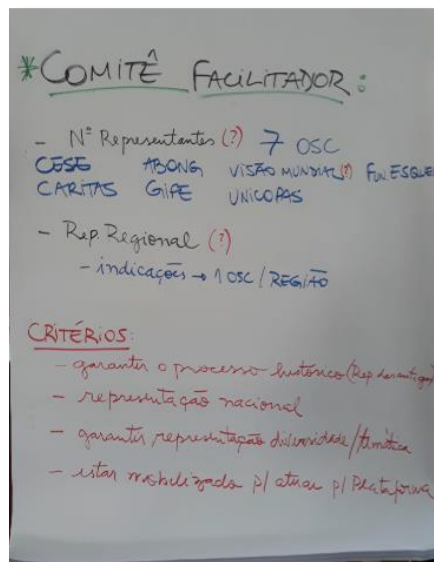 *COMITÊ FACILITADOR:
- Nº Representantes (?) 7 OSC
CESE ABONG VISÃO MUNDIAL(?) FUN.ESQUEL
CARITAS GIFE UNICOPAS
- Rep. Regional (?)
- indicações → 1 OSC / REGIÃO
CRITÉRIOS:
- garantir o processo histórico (Rep. das antigas)
- representação nacional
- garantir representação diversidade/temática
- estar mobilizado p/ atuar p/ Plataforma